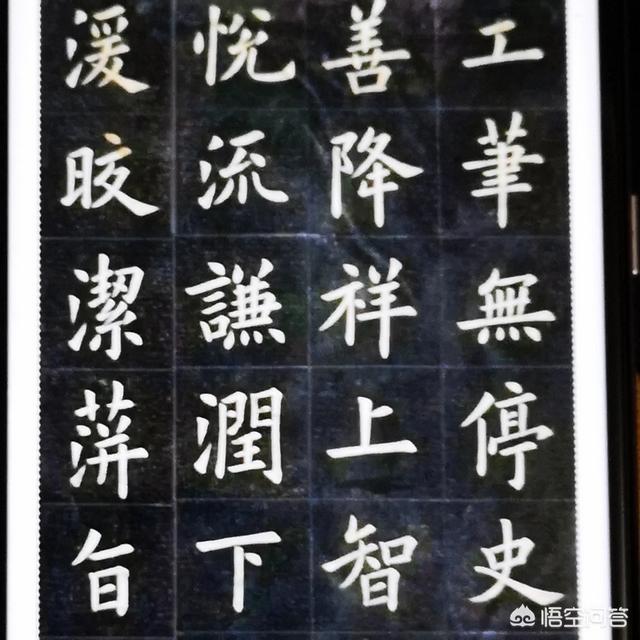 工筆無停史
善降祥上智
悦流謙潤下
湲晈潔蓱旨
悟空问答